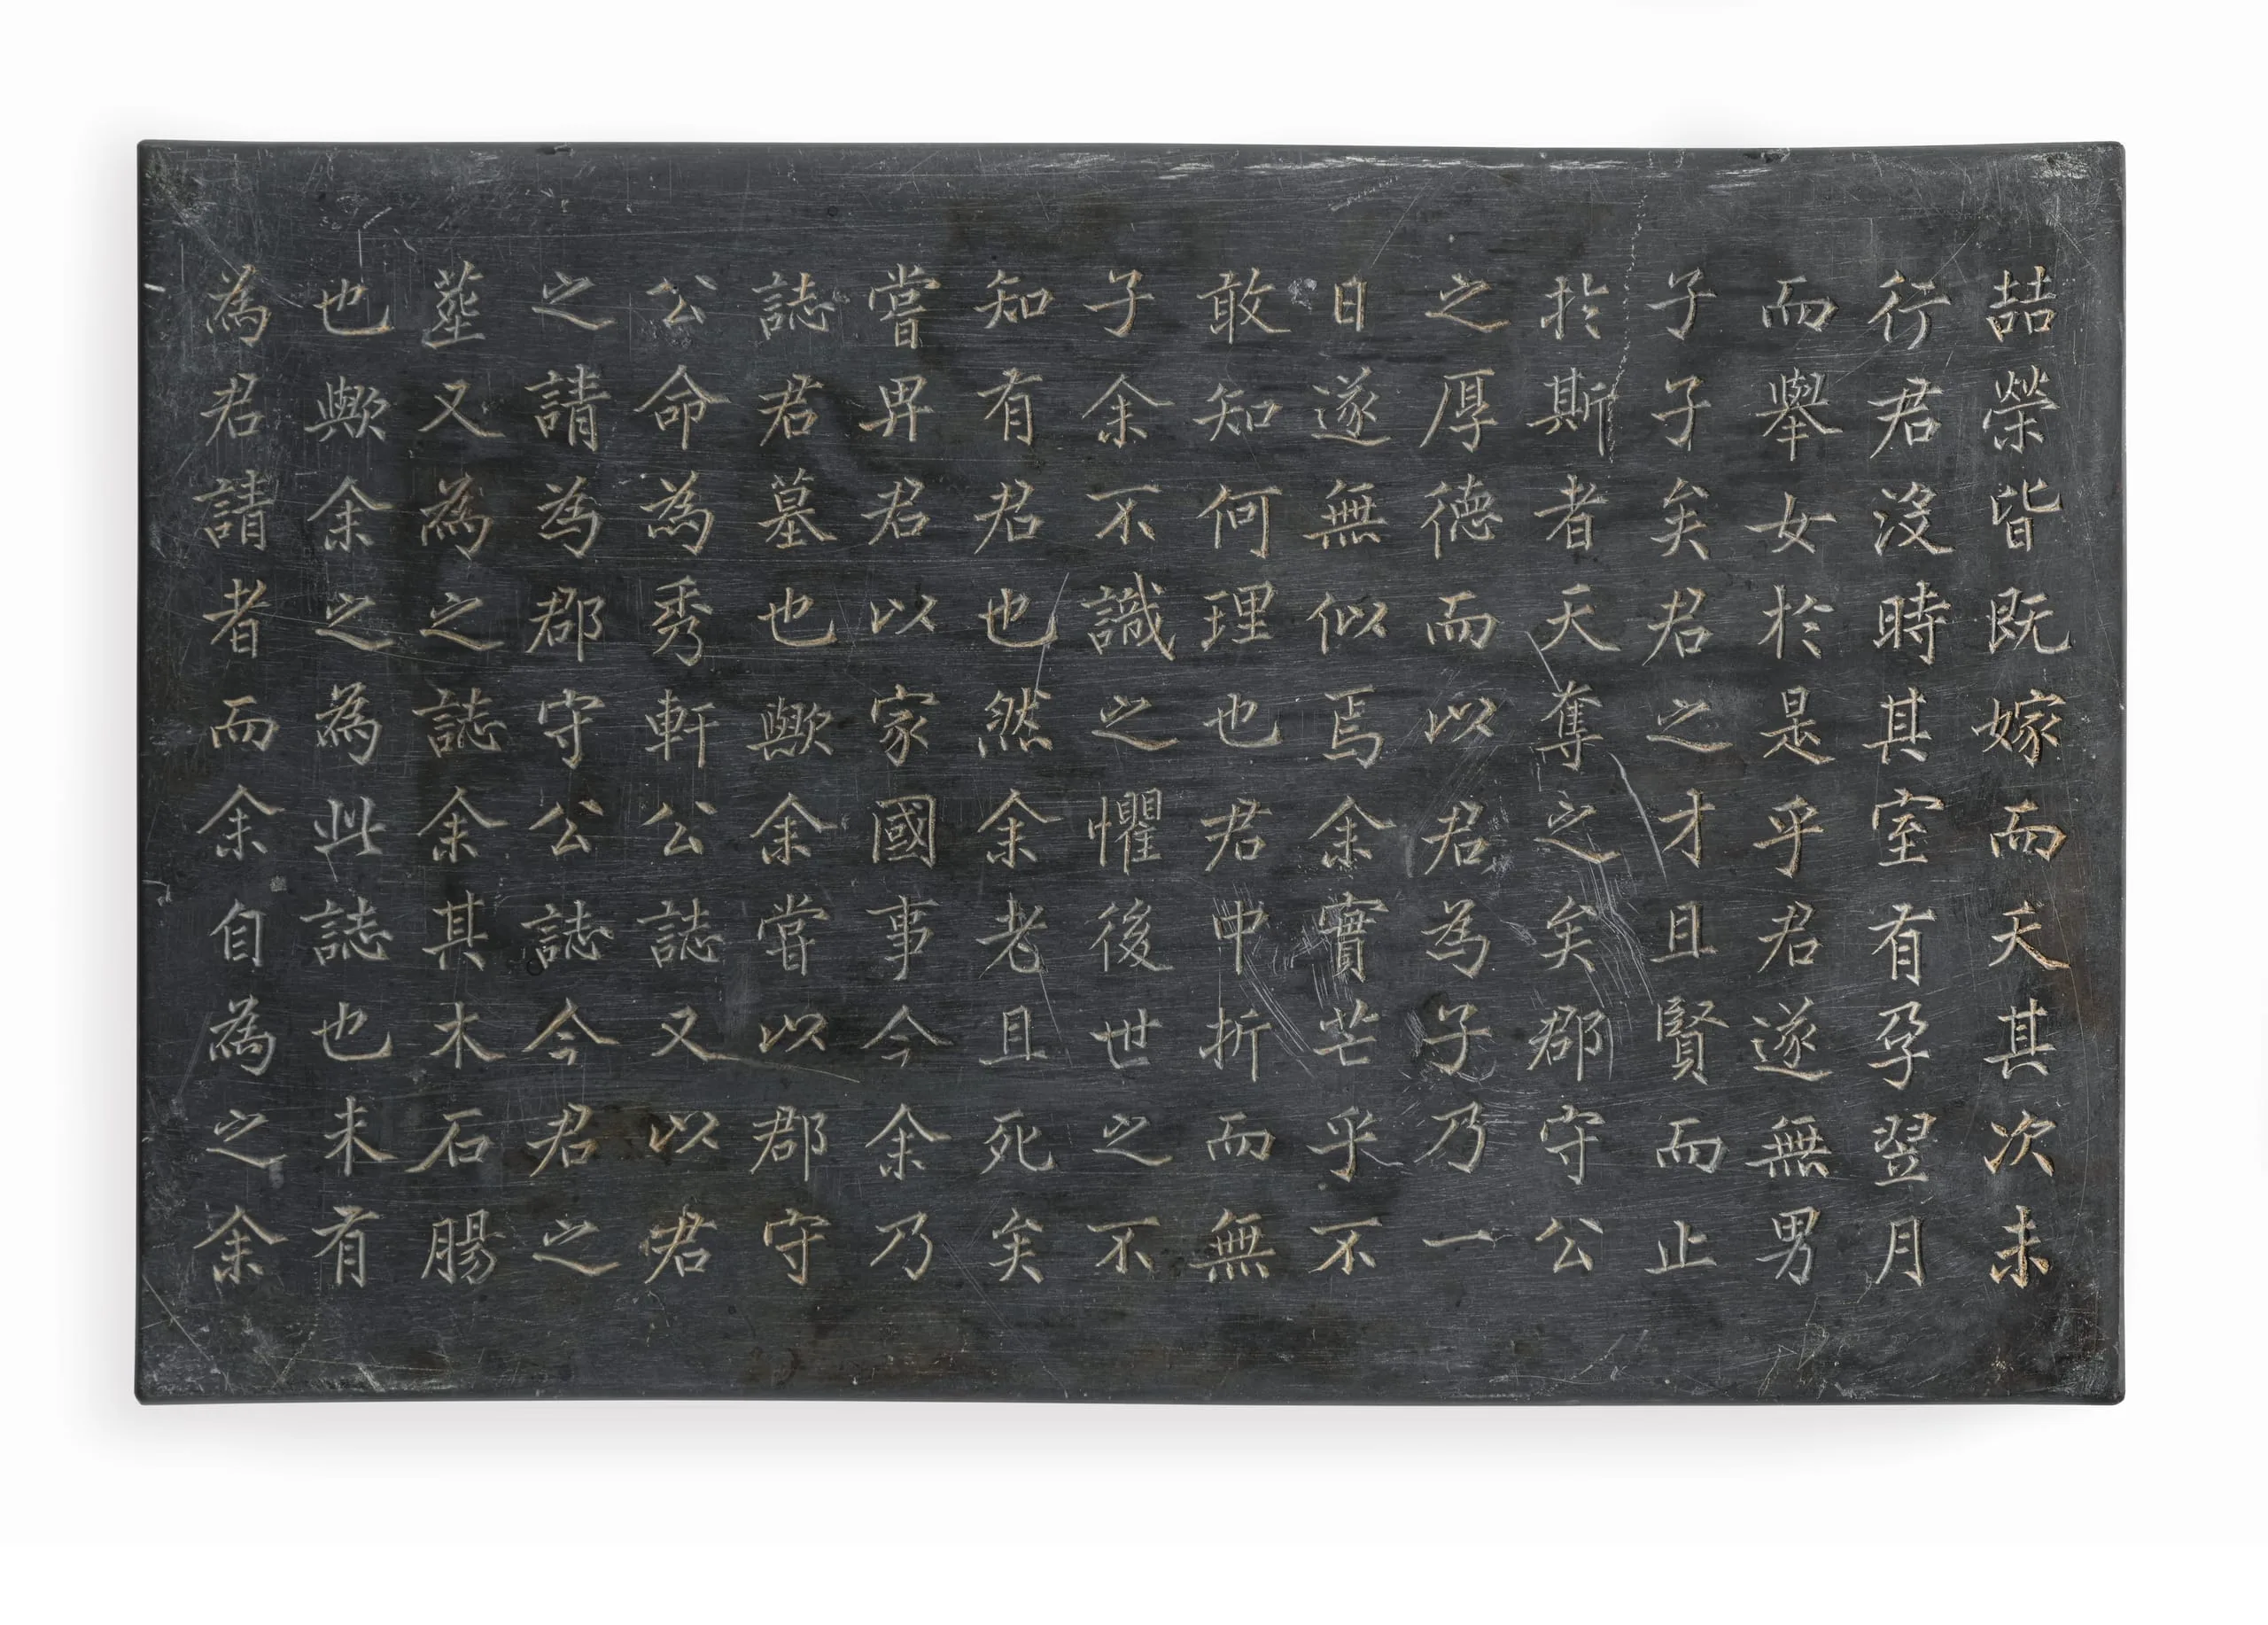 喆榮皆既嫁而夭其次未
行君沒時其室有孕翌月
而擧女於是乎君遂無男
子子矣君之才且賢而止
於斯者天奪之矣郡守公
之厚德而以君爲子乃一
日遂無似焉余實芒乎不
敢知何理也君中折而無
子余不識之懼後世之不
知有君也然余老且死矣
嘗畀君以家國事今余乃
誌君墓也歟余嘗以郡守
公命為秀軒公誌又以君
之請為郡守公誌今君之
塟又為之誌余其木石腸
也歟余之為此誌也未有
為君請者而余自為之余